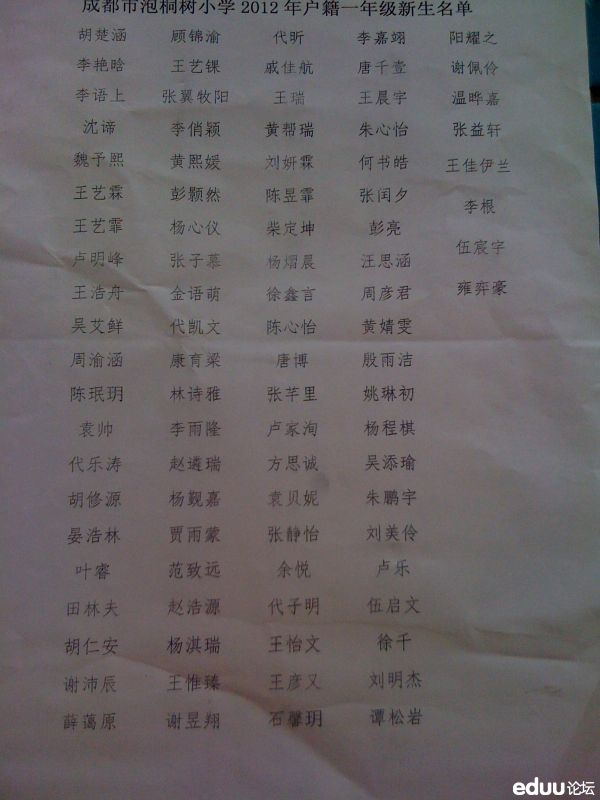 成都市泡桐树小学2012年户籍一年级新生名单
胡楚涵 顾锦渝 代昕 李嘉翊 阳耀之
李艳晗 王艺锞 戚佳航 唐千萱 谢佩伶
李语上 张翼牧阳 王瑞 王晨宇 温晔嘉
沈谛 李俏颖 黄帮瑞 朱心怡 张益轩
魏予熙 黄熙媛 刘妍霖 何书皓 王佳伊兰
王艺霖 彭颢然 陈昱霏 张闰夕 李根
王艺霏 杨心仪 柴定坤 彭亮 伍宸宇
卢明峰 张子慕 杨熠晨 汪思涵 雍弈豪
王浩舟 金语萌 徐鑫言 周彦君
吴艾鲜 代凯文 陈心怡 黄婧雯
周渝涵 康育梁 唐博 殷雨洁
陈珉玥 林诗雅 张芊里 姚琳初
袁帅 李雨隆 卢家洵 杨程棋
代乐涛 赵遴瑞 方思诚 吴添瑜
胡修源 杨觐嘉 袁贝妮 朱鹏宇
晏浩林 贾雨蒙 张静怡 刘美伶
叶睿 范致远 余悦 卢乐
田林夫 赵浩源 代子明 伍启文
胡仁安 杨淇瑞 王怡文 徐千
谢沛辰 王惟臻 王彦又 刘明杰
薛蔼原 谢昱翔 石馨玥 谭松岩
eduu论坛